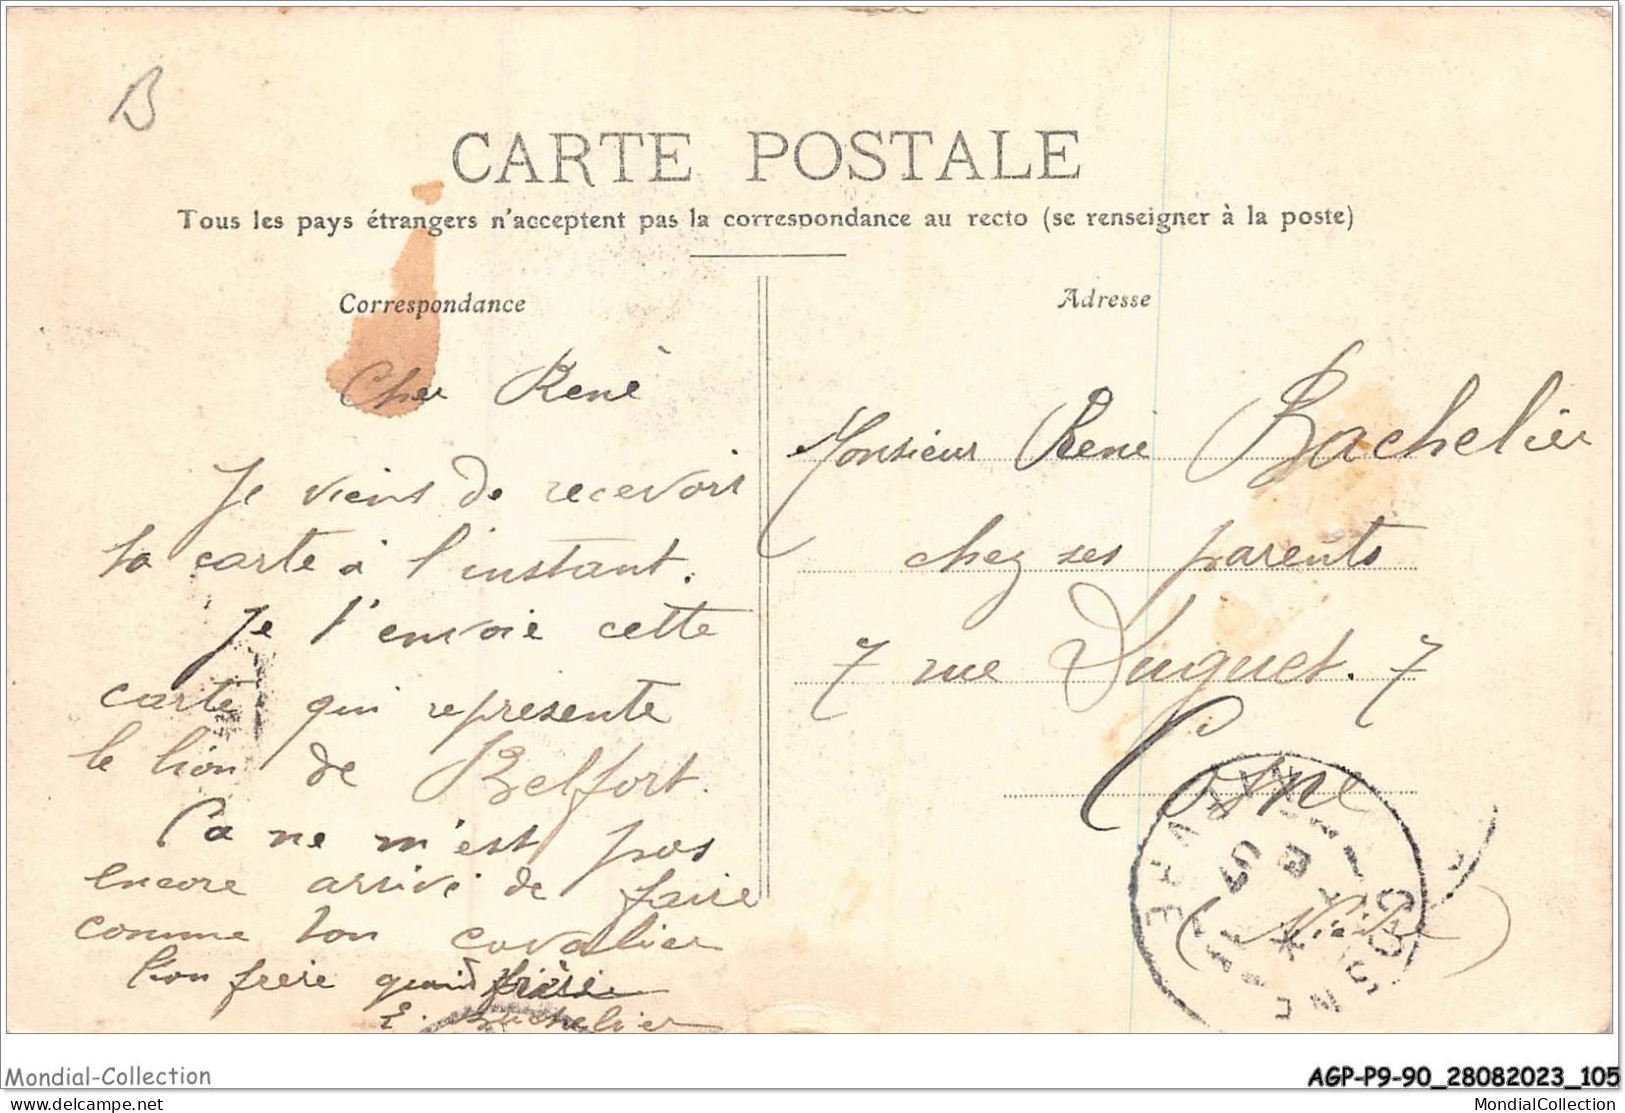 B
CARTE POSTALE
Tous les pays étrangers n'acceptent pas la correspondance au recto (se renseigner à la poste)
Correspondance
Cher René
Je viens de recevoir
ta carte à l'instant.
Je t'envoie cette
carte qui represente
le lion de Belfort.
Ca ne m'est pas
encore arrivé de faire
comme ton cavalier
Ton frere
E. Bachelier
Adresse
Monsieur René Bachelier
chez ses parents
7 rue Duguet. 7
Cosne
(Nièvre)
COSNE
NIEVRE
Mondial-Collection
AGP-P9-90_28082023_105
delcampe.net
MondialCollection